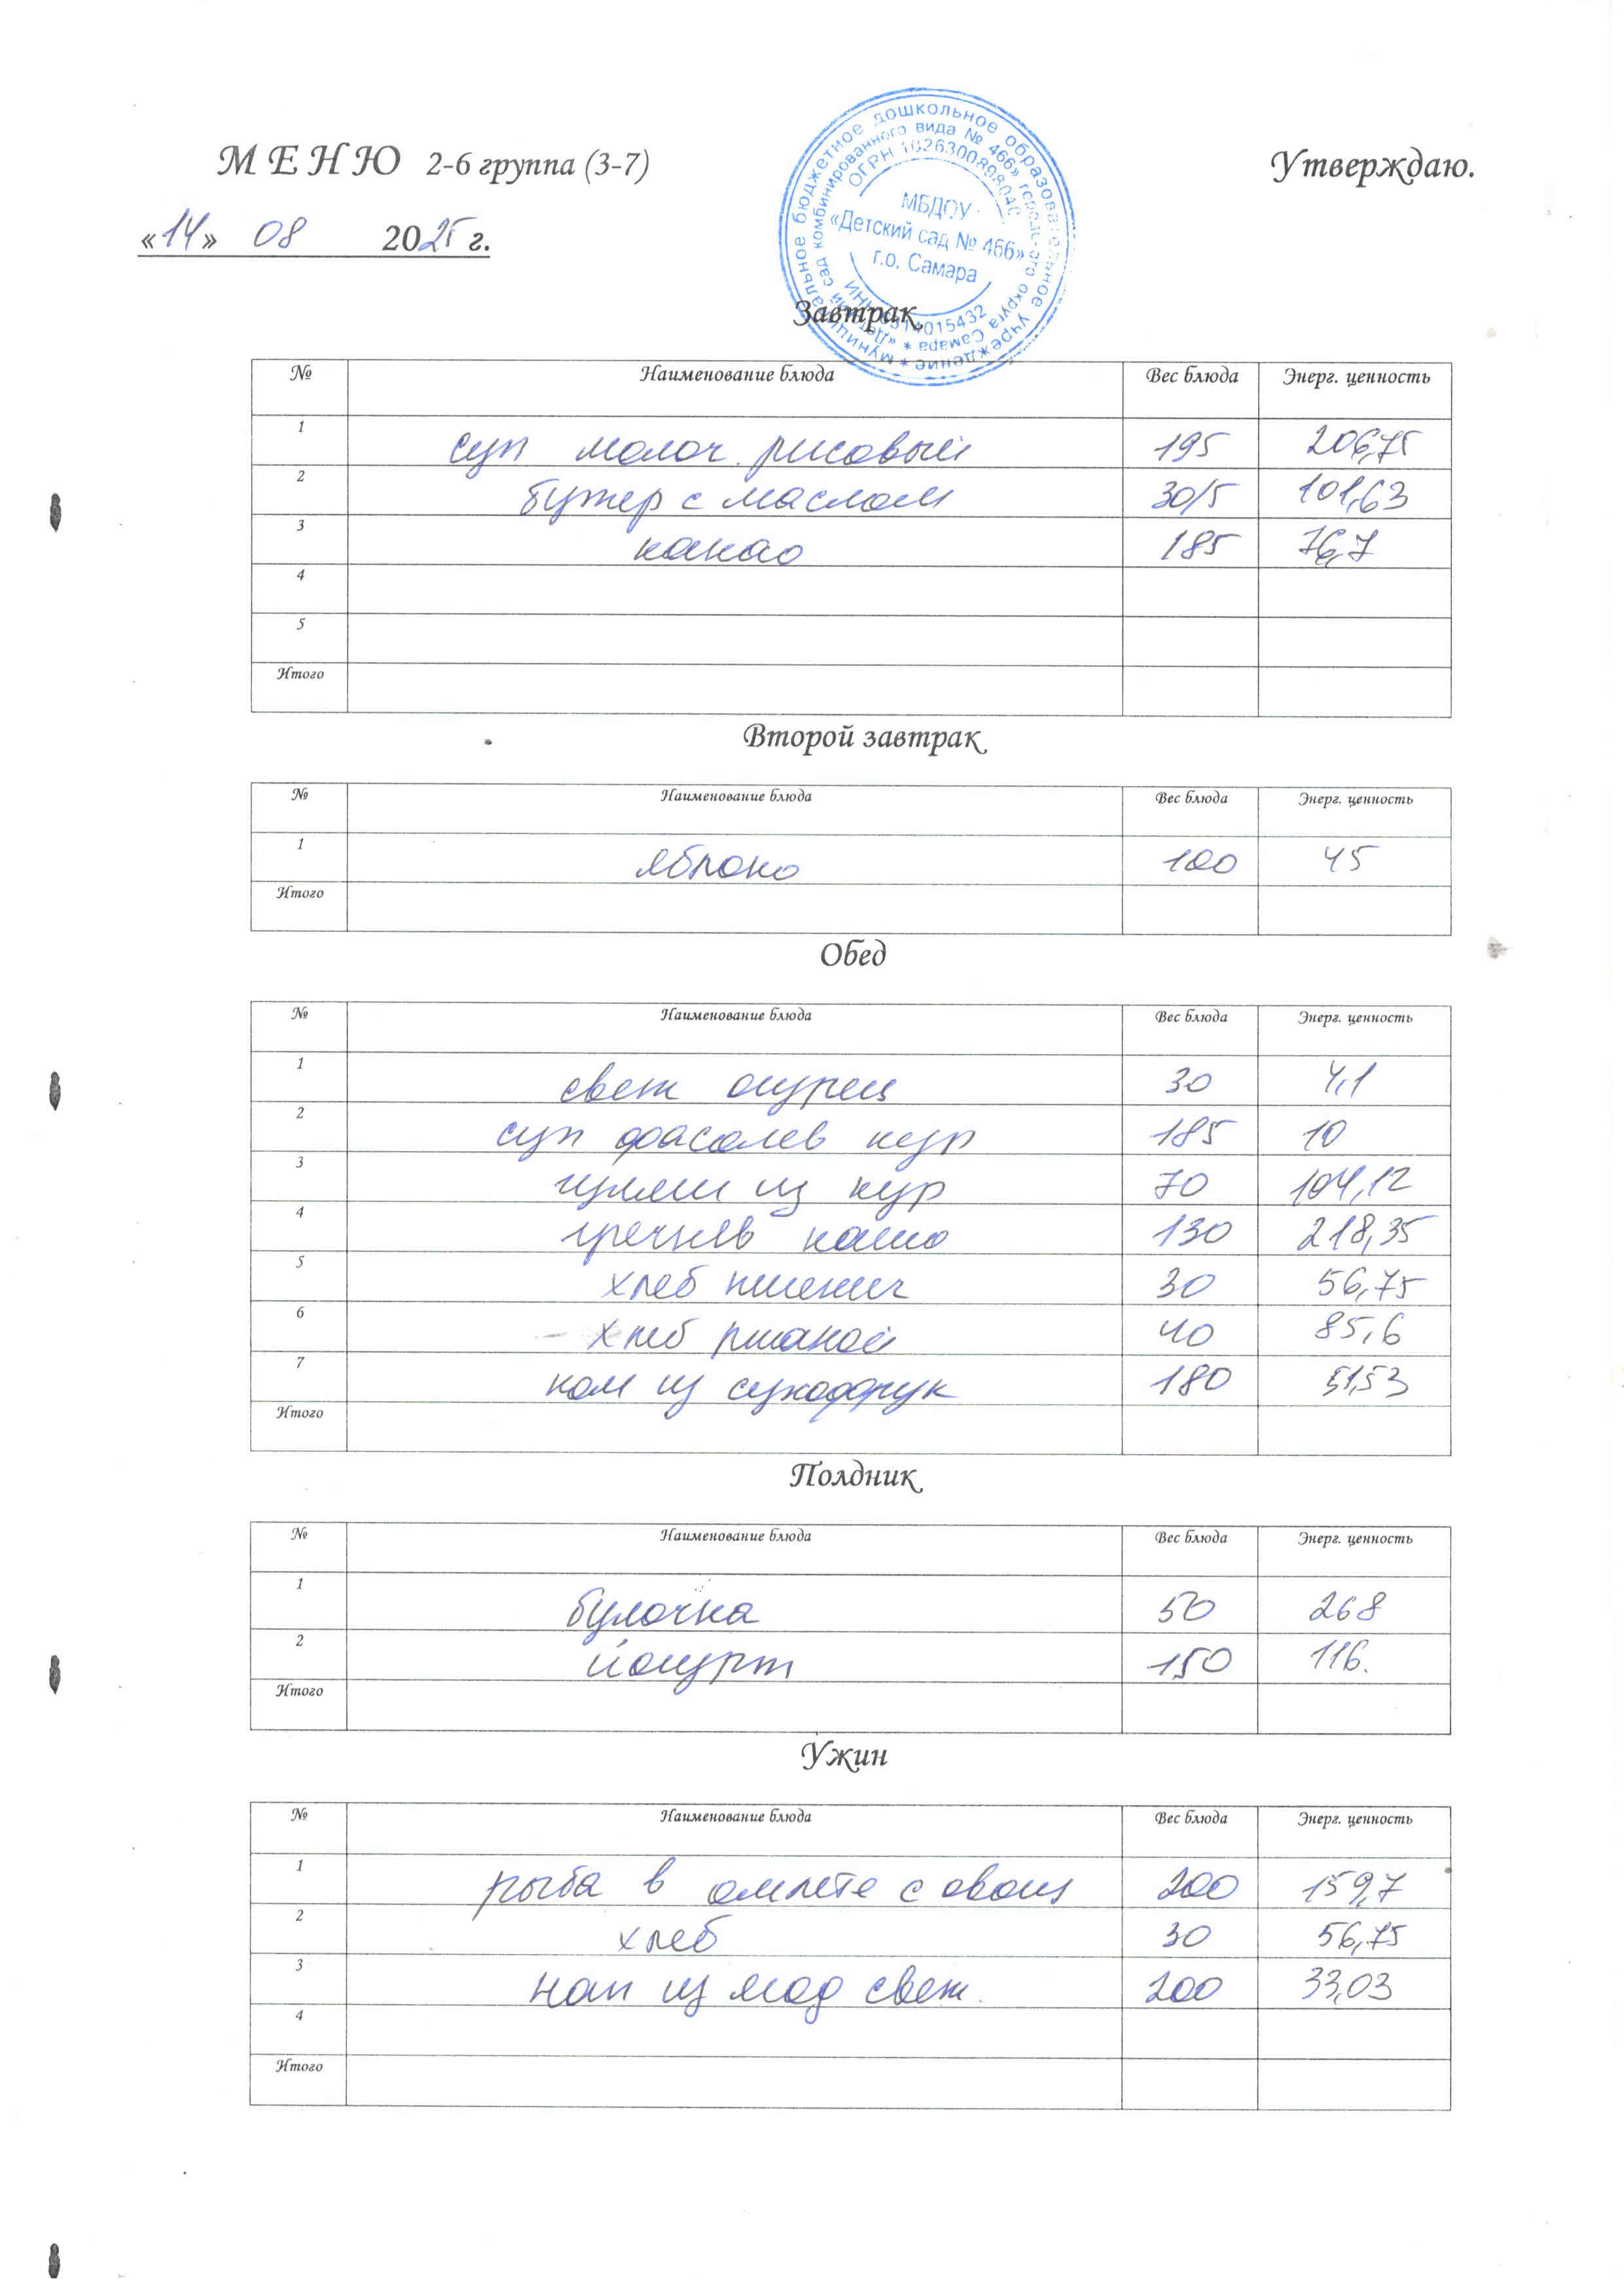 МЕНЮ 2-6 группа (3-7) Утверждаю.
«14» 08 2025 г.
муниципальное бюджетное дошкольное образовательное учреждение *
«Детский сад комбинированного вида № 466» городского округа Самара *
ОГРН
МБДОУ
«Детский сад № 466»
г.о. Самара
ИНН
Завтрак.
№ Наименование блюда Вес блюда Энерг. ценность
1 суп молоч. рисовый 195 206,75
2 бутер с маслом 30/5 101,63
3 какао 185 76,7
4
5
Итого
Второй завтрак
№ Наименование блюда Вес блюда Энерг. ценность
1 яблоко 100 45
Итого
Обед
№ Наименование блюда Вес блюда Энерг. ценность
1 свеж огурец 30 4,1
2 суп фасолев кур 185 10
3 гуляш из кур 70 104,12
4 гречнев каша 130 218,35
5 хлеб пшенич 30 56,75
6 хлеб ржаной 40 85,6
7 ком из сухофрук 180 51,53
Итого
Полдник
№ Наименование блюда Вес блюда Энерг. ценность
1 булочка 50 268
2 йогурт 150 116.
Итого
Ужин
№ Наименование блюда Вес блюда Энерг. ценность
1 рыба в омлете с овощ 200 159,7
2 хлеб 30 56,75
3 нап из ягод свеж. 200 33,03
4
Итого